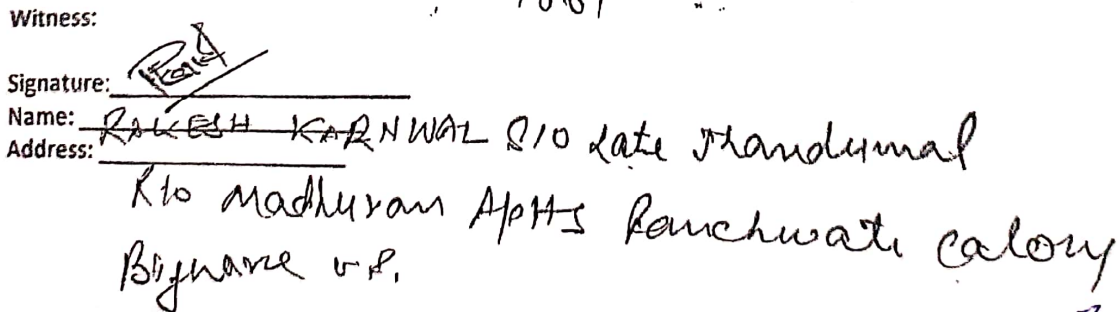 Witness:
Signature:
Name: RAKESH KARNWAL S/O Late Nandumal
Address:
R/o Madhuvan Aptts Panchwati Calony
Bijnore U.P.